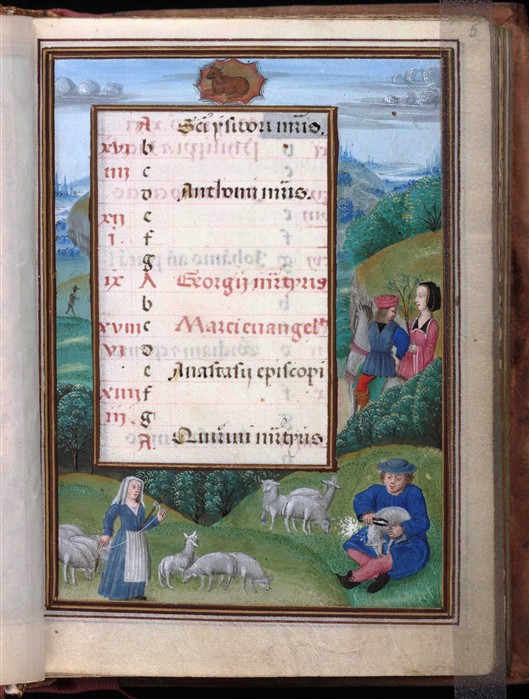 5
A Sci ysitori mris.
xvi b
iiii c
d Anthoni mris.
xii e
i f
g
ix A Georgii mrtyris
b
xviii c Marci euangel
vi d
e Anastasii episcopi
xiiii f
iii g
A Quirini mrtyris